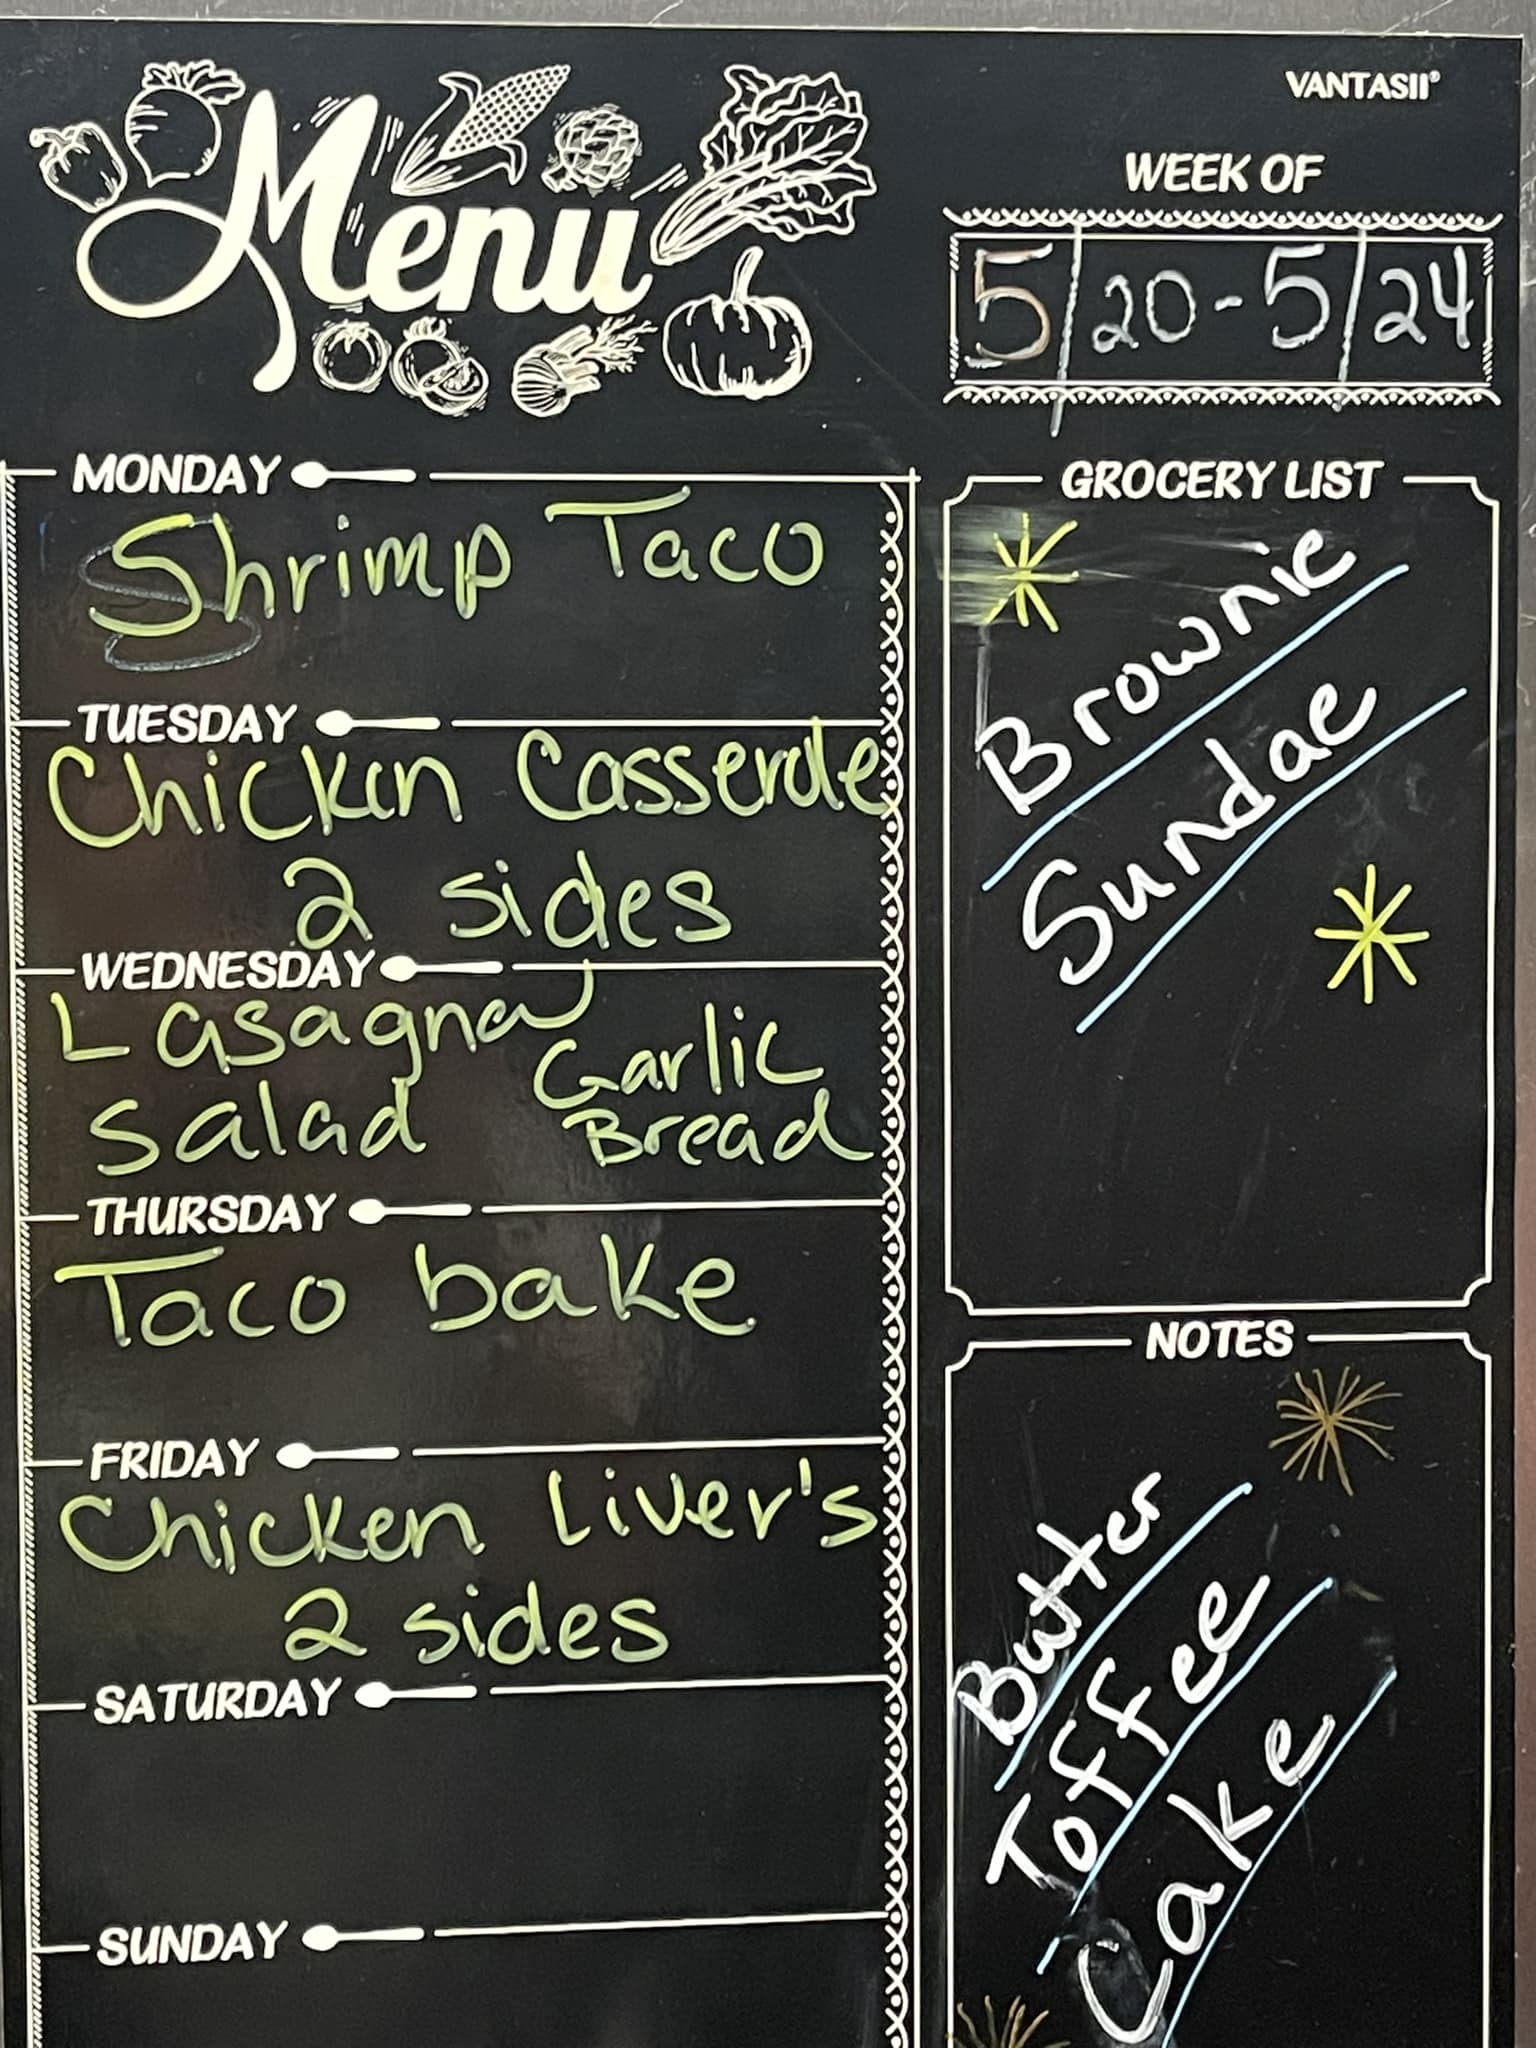 VANTASII®
Menu
WEEK OF
5/20-5/24
MONDAY
Shrimp Taco
TUESDAY
Chicken Casserole
2 sides
WEDNESDAY
Lasagna
Salad
Garlic
Bread
THURSDAY
Taco bake
FRIDAY
Chicken Liver's
2 sides
SATURDAY
SUNDAY
GROCERY LIST
Brownie
Sundae
NOTES
Butter
Toffee
Cake